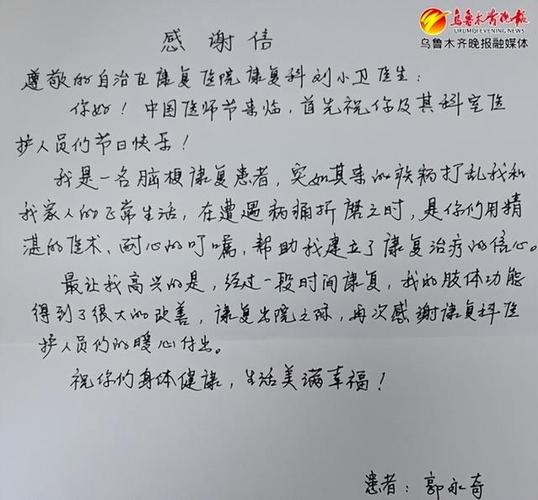 乌鲁木齐晚报
URUMQI EVENING NEWS
乌鲁木齐晚报融媒体
感谢信
尊敬的自治区康复医院康复科刘小卫医生:
你好!中国医师节来临,首先祝你及其科室医
护人员们节日快乐!
我是一名脑梗康复患者,突如其来的疾病打乱我和
我家人的正常生活,在遭遇病痛折磨之时,是你们用精
湛的医术、耐心的叮嘱,帮助我建立了康复治疗的信心。
最让我高兴的是,经过一段时间康复,我的肢体功能
得到了很大的改善,康复出院之际,再次感谢康复科医
护人员们的暖心付出。
祝你们身体健康,生活美满幸福!
患者:郭永奇